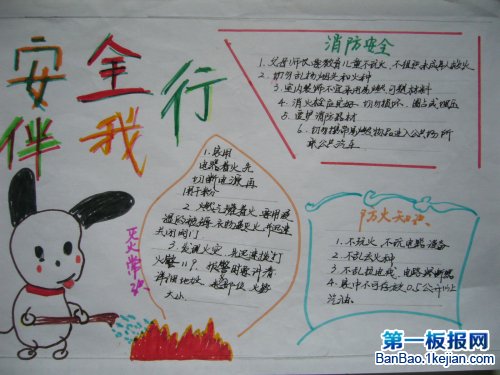 安全
伴我行
消防安全
1. 父母、师长要教育儿童不玩火,不组织未成年人救火
2. 切勿乱扔烟头和火种
3. 室内装饰不宜采用易燃可燃材料
4. 消火栓应见好,切勿损坏、圈占或埋压
5. 爱护消防器材
6. 切勿携带易燃物品进入公共场所
乘公共汽车
灭火常识
1. 家用
电器着火先
切断电源,再
2. 燃气罐着火,要用浸
湿的被褥、衣物
关闭阀门
3. 发现火灾,迅速拨打
火警119,报警时要讲清
详细地址、起火部位、火势
大小
防火知识
1. 不玩火,不玩电器设备
2. 不乱丢火种
3. 不乱拉电线,电路
4. 家中不可存放0.5公斤以上
汽油
第一板报网
BanBao.1kejian.com